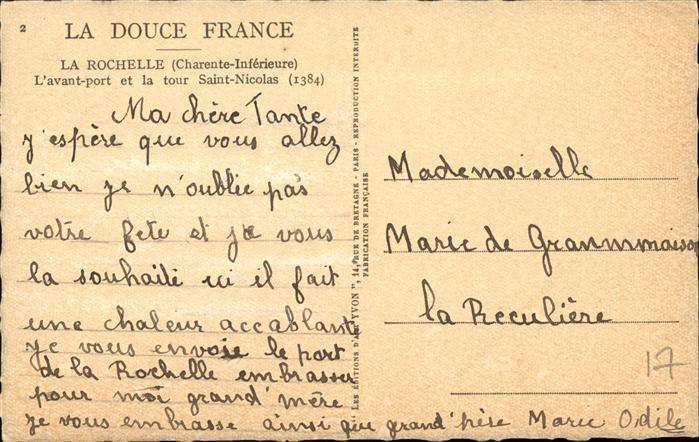 2
LA DOUCE FRANCE
LA ROCHELLE (Charente-Inférieure)
L'avant-port et la tour Saint-Nicolas (1384)
Ma chère Tante
j'espère que vous allez
bien je n'oublie pas
votre fete et je vous
la souhaite ici il fait
une chaleur accablante
je vous envoie le port
de la Rochelle embrasser
pour moi grand'mère
je vous embrasse ainsi que grand'père Marie Odile
LES EDITIONS D'ART "YVON", 14, RUE DE BRETAGNE - PARIS - REPRODUCTION INTERDITE
FABRICATION FRANÇAISE
Mademoiselle
Marie de Grammaison
la Reculière
17